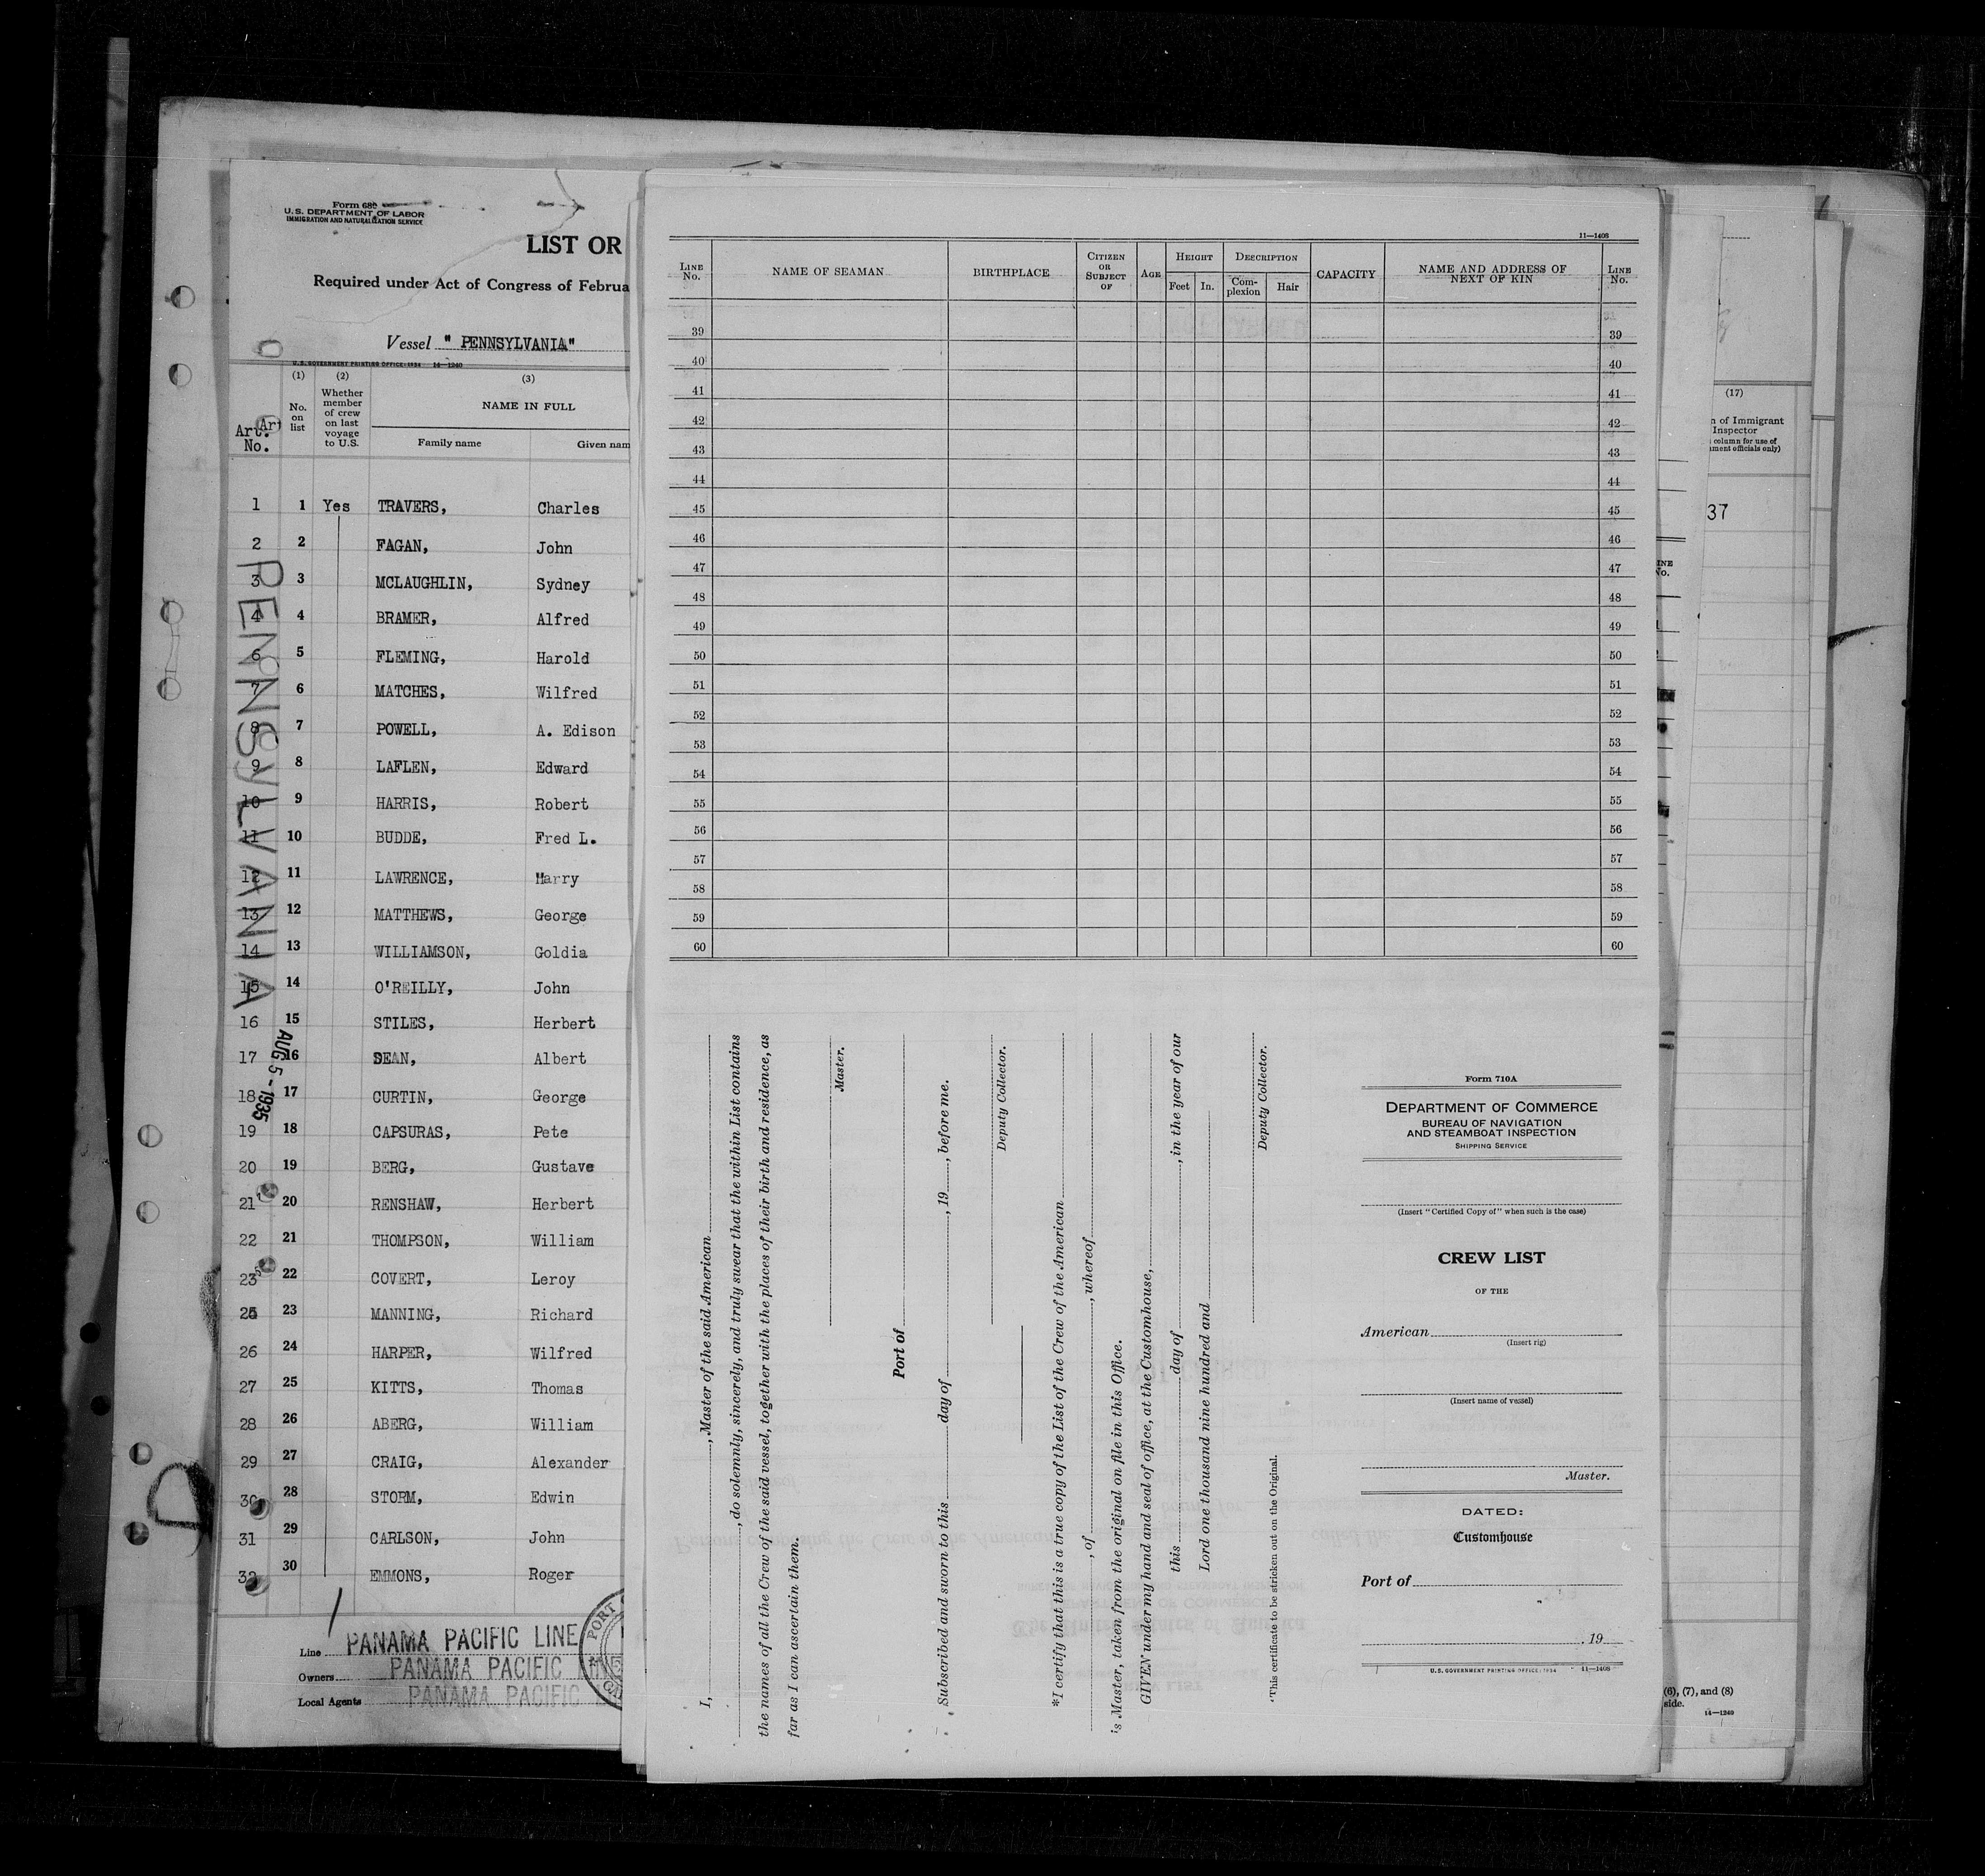 Form 680
U. S. DEPARTMENT OF LABOR
IMMIGRATION AND NATURALIZATION SERVICE
LIST OR
Required under Act of Congress of Februa
Vessel " PENNSYLVANIA"
U. S. GOVERNMENT PRINTING OFFICE: 1934 14—1240
Art. No.
(1) No. on list
(2) Whether member of crew on last voyage to U.S.
(3) NAME IN FULL
Family name Given nam
1 1 Yes TRAVERS, Charles
2 2 FAGAN, John
3 3 MCLAUGHLIN, Sydney
4 4 BRAMER, Alfred
6 5 FLEMING, Harold
7 6 MATCHES, Wilfred
8 7 POWELL, A. Edison
9 8 LAFLEN, Edward
10 9 HARRIS, Robert
11 10 BUDDE, Fred L.
12 11 LAWRENCE, Harry
13 12 MATTHEWS, George
14 13 WILLIAMSON, Goldia
15 14 O'REILLY, John
16 15 STILES, Herbert
17 16 SEAN, Albert
18 17 CURTIN, George
19 18 CAPSURAS, Pete
20 19 BERG, Gustave
21 20 RENSHAW, Herbert
22 21 THOMPSON, William
23 22 COVERT, Leroy
25 23 MANNING, Richard
26 24 HARPER, Wilfred
27 25 KITTS, Thomas
28 26 ABERG, William
29 27 CRAIG, Alexander
30 28 STORM, Edwin
31 29 CARLSON, John
32 30 EMMONS, Roger
PENNSYLVANIA
AUG 5 - 1935
Line PANAMA PACIFIC LINE
Owners PANAMA PACIFIC LINE
Local Agents PANAMA PACIFIC
PORT
11—1408
LINE No.
NAME OF SEAMAN
BIRTHPLACE
CITIZEN OR SUBJECT OF
AGE
HEIGHT
Feet In.
DESCRIPTION
Complexion Hair
CAPACITY
NAME AND ADDRESS OF NEXT OF KIN
LINE No.
39 39
40 40
41 41
42 42
43 43
44 44
45 45
46 46
47 47
48 48
49 49
50 50
51 51
52 52
53 53
54 54
55 55
56 56
57 57
58 58
59 59
60 60
I, , Master of the said American
, do solemnly, sincerely, and truly swear that the within List contains
the names of all the Crew of the said vessel, together with the places of their birth and residence, as
far as I can ascertain them.
Master.
Port of
Subscribed and sworn to this day of , 19 , before me.
Deputy Collector.
*I certify that this is a true copy of the List of the Crew of the American
, of , whereof
is Master, taken from the original on file in this Office.
GIVEN under my hand and seal of office, at the Customhouse,
this day of , in the year of our
Lord one thousand nine hundred and
Deputy Collector.
*This certificate to be stricken out on the Original.
Form 710A
DEPARTMENT OF COMMERCE
BUREAU OF NAVIGATION
AND STEAMBOAT INSPECTION
SHIPPING SERVICE
(Insert "Certified Copy of" when such is the case)
CREW LIST
OF THE
American
(Insert rig)
(Insert name of vessel)
Master.
DATED:
Customhouse
Port of
, 19
U.S. GOVERNMENT PRINTING OFFICE: 1934 11—1408
(17)
n of Immigrant
Inspector
column for use of
ment officials only)
37
INE
No.
(6), (7), and (8)
side.
14—1240